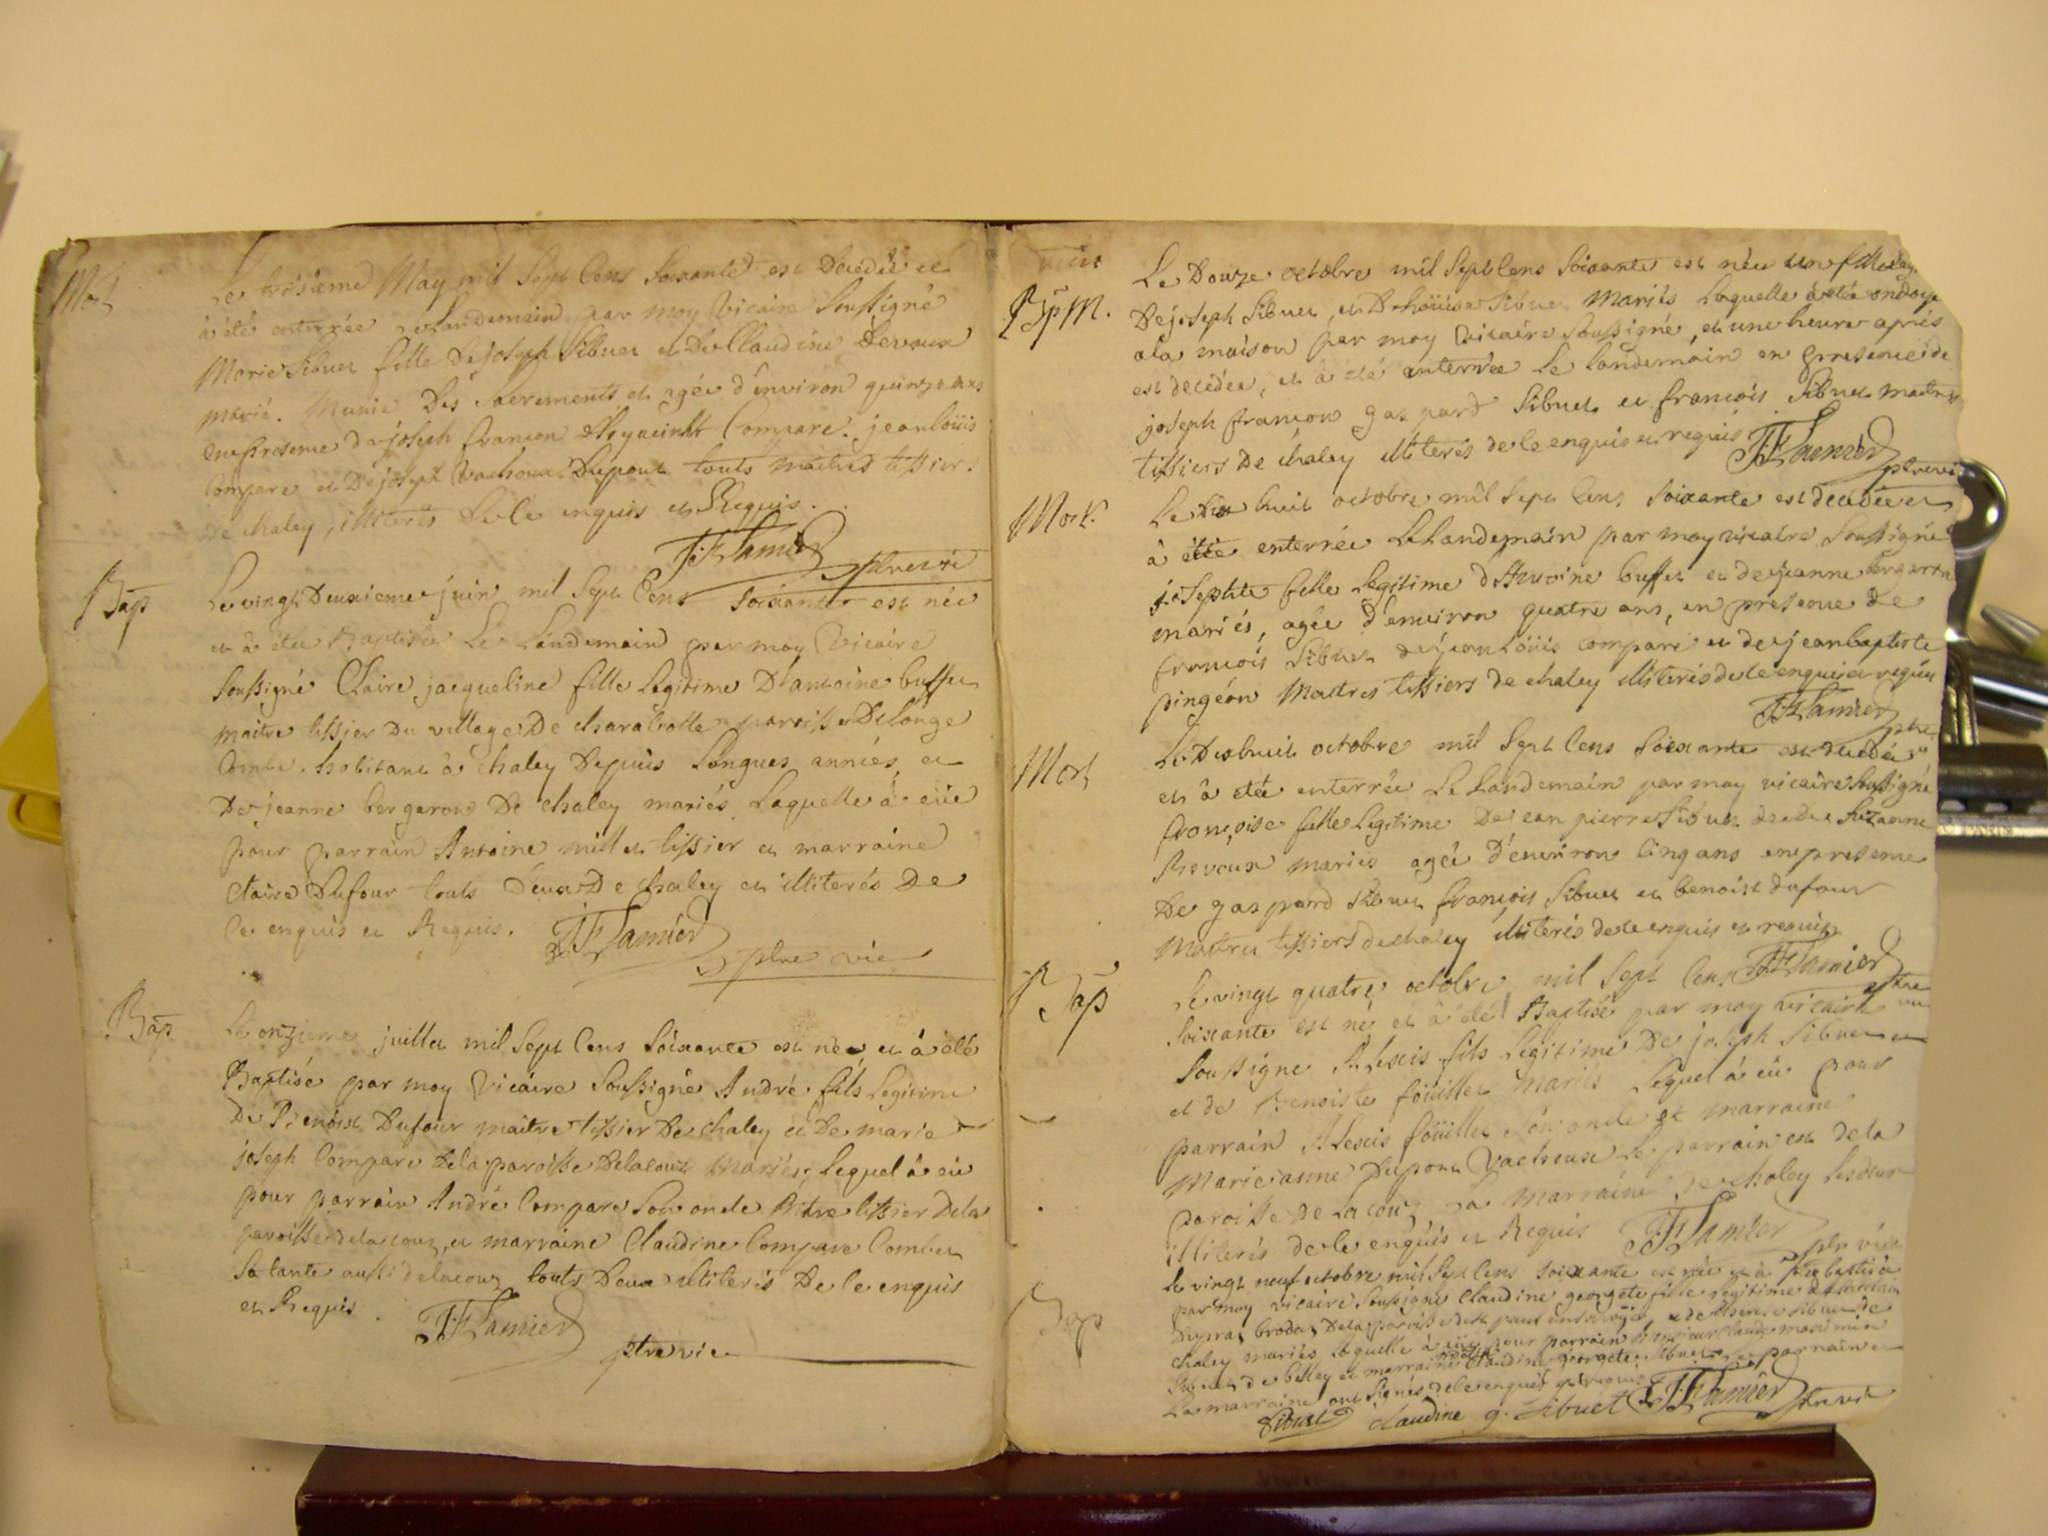 Mort
Le troisieme May mil Sept Cens Soixante est Decedée et
à été enterrée Le Landemain par moy Vicaire Soussigné
Marie Sibuet fille De joseph Sibuet et de Claudine Devaux
marié. Munie Des Sacrements et agée d'environ quinze ans
en presence de joseph françon d'hyacinthe Compare. jean loüis
Compare et De joseph Vacheux Dupont touts maitres tissier.
De chaley, illiterés de le enquis et Requis.
JF Lamier
ptre vic
Bap
Le vingt Deuxieme juin mil Sept Cens Soixante est née
et à été Baptisée Le Landemain par moy Vicaire
Soussigné Claire jacqueline fille Legitime D'antoine buffet
maitre tissier Du village De charabotte parroisse De longe
Combe. habitant à chaley Depuis Longues années, et
De jeanne bergeron De chaley mariés. Laquelle à eüe
pour parrain Antoine millet tissier et marraine
Claire Dufour touts Deux De chaley et illiterés De
le enquis et Requis.
JF Lamier
ptre vic
Bap
Le onzieme juillet mil Sept Cens Soixante est né et à été
Baptisé par moy Vicaire Soussigné André fils Legitime
De Benoist Dufour maitre tissier De chaley et De marie
joseph Compare De la paroisse De lacoux Mariés, Lequel à eü
pour parrain André Compare Son oncle Mtre tissier De la
paroisse de lacoux, et marraine Claudine Compare Combet
Sa tante aussi de lacoux touts Deux illiterés De le enquis
et Requis.
JF Lamier
ptre vic
Bap M.
Le Douze octobre mil Sept Cens Soixante est née une fille
De joseph Sibuet, et De loüise Sibuet Mariés Laquelle à été ondoyé
a la maison par moy Vicaire Soussigné, et une heure aprés
est decedée, et à eté enterrée Le landemain en presence de
joseph françon gaspard Sibuet et françois Sibuet maitres
tissiers De chaley illiterés de le enquis et requis
JF Lamier
ptre vic
Mort
Le Dix huit octobre mil Sept Cens Soixante est decedée et
à été enterrée Le Landemain par moy vicaire Soussigné
josephte fille Legitime d'Antoine buffet et de jeanne bergeron
mariés, agée d'environ quatre ans, en presence De
françois Sibuet de jean Loüis compare et de jean baptiste
pingéon Maitres tissiers de chaley illiterés de le enquis et requis
JF Lamier
ptre
Mort
Le Dixhuit octobre mil Sept Cens Soixante est decedée
et à eté enterrée Le Landemain par moy vicaire Soussigné
françoise fille Legitime De jean pierre Sibuet et de Suzanne
Revoux mariés agée d'environ Cinq ans en presence
De gaspard Sibuet françois Sibuet et benoist dufour
Maitres tissiers de chaley illiterés de le enquis et requis
JF Lamier
ptre vic
Bap
Le vingt quatre octobre mil Sept Cens
Soixante est né et à eté Baptisé par moy vicaire
Soussigné Alexis fils Legitime De joseph Sibuet
et de Benoiste foüillet mariés Lequel à eü pour
parrain Alexis foüillet Son oncle et marraine
Marie anne Dupont Vacheux Le parrain est de la
paroisse De lacoux La marraine de chaley Les deux
illiterés de le enquis et Requis
JF Lamier
ptre vic
Bap
Le vingt neuf octobre mil Sept Cens Soixante est née et à été baptisée
par moy vicaire Soussigné Claudine georgete fille Legitime
chaley mariés Laquelle à eüe pour parrain Monsieur Claude
Sibuet de belley et marraine Claudine georgete Sibuet parrain et
La marraine ont Signés de le enquis et requis
JF Lamier
ptre vic
Sibuet
claudine g. Sibuet